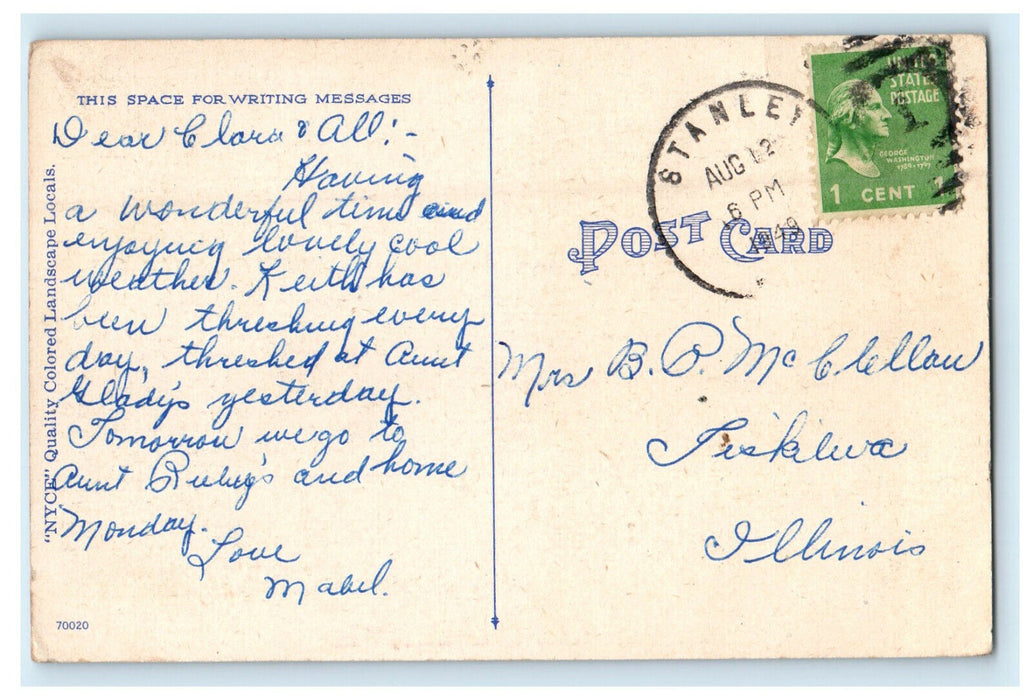 THIS SPACE FOR WRITING MESSAGES
Dear Clara & All:-
Having
a wonderful time and
enjoying lovely cool
weather. Keith has
been threshing every
day, threshed at Aunt
Gladys yesterday.
Tomorrow we go to
Aunt Ruby's and home
Monday.
Love
Mabel.
70020
"NYCE" Quality Colored Landscape Locals.
STANLEY
AUG 12
6 PM
1949
UNITED
STATES
POSTAGE
1
GEORGE
WASHINGTON
1789-1797
1 CENT 1
POST CARD
Mrs B. P. McClellan
Tiskilwa
Illinois